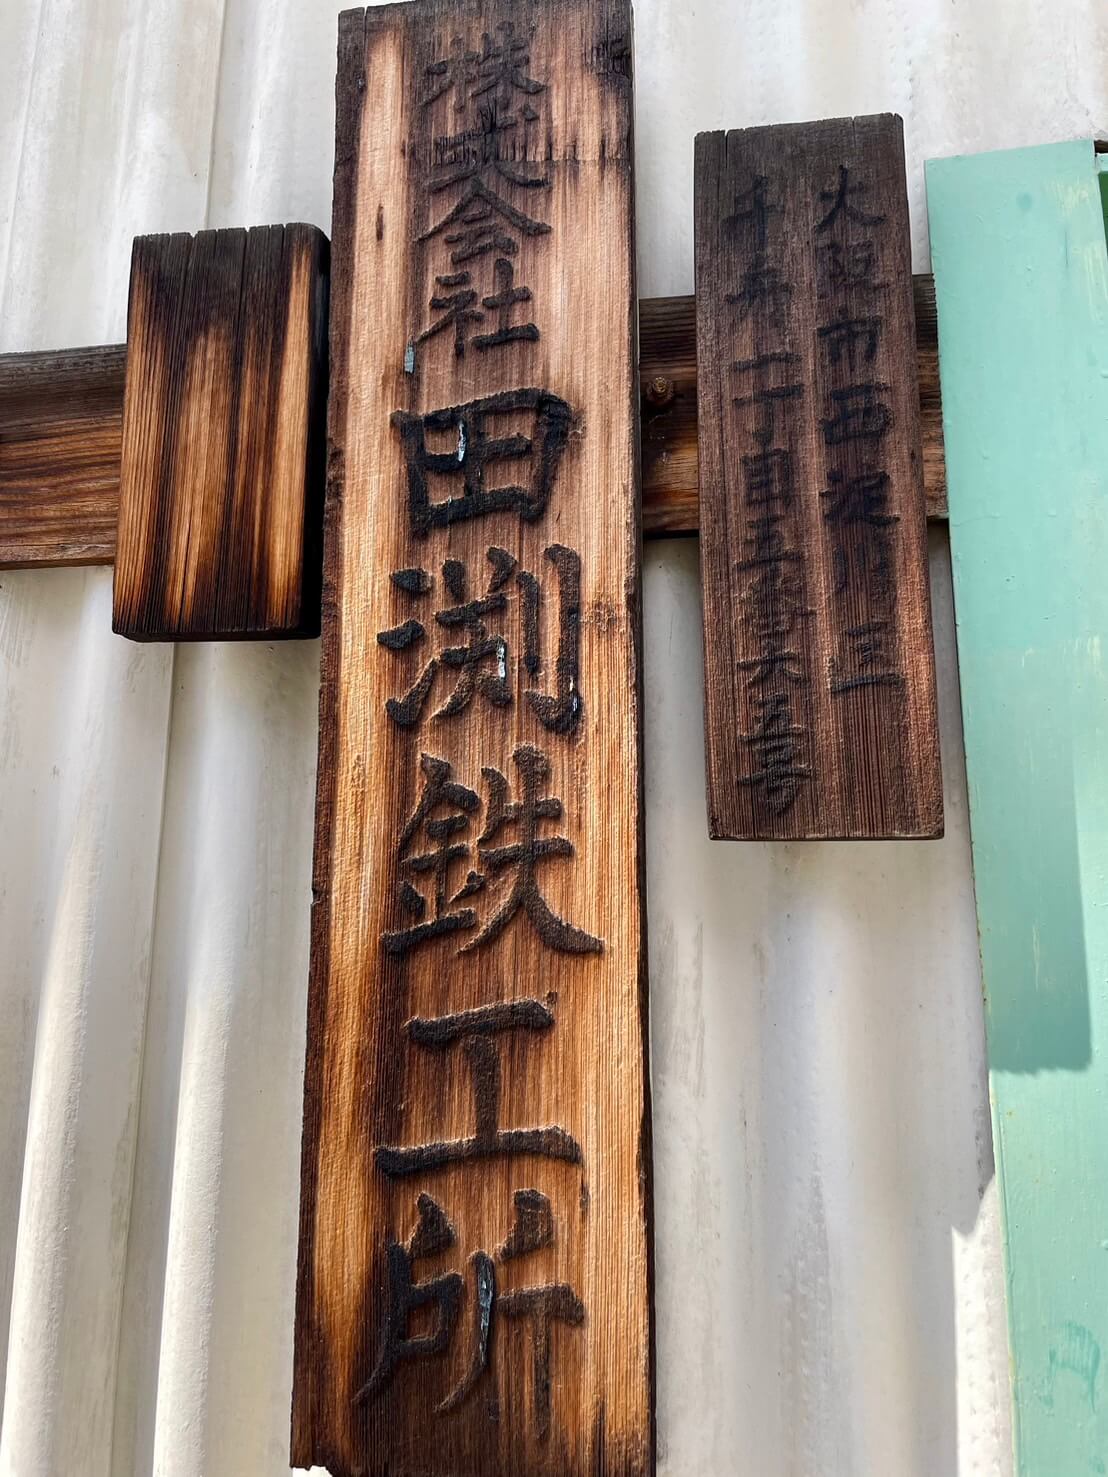 大阪市西淀川区
千舟二丁目五番 五号
株式会社田渕鉄工所